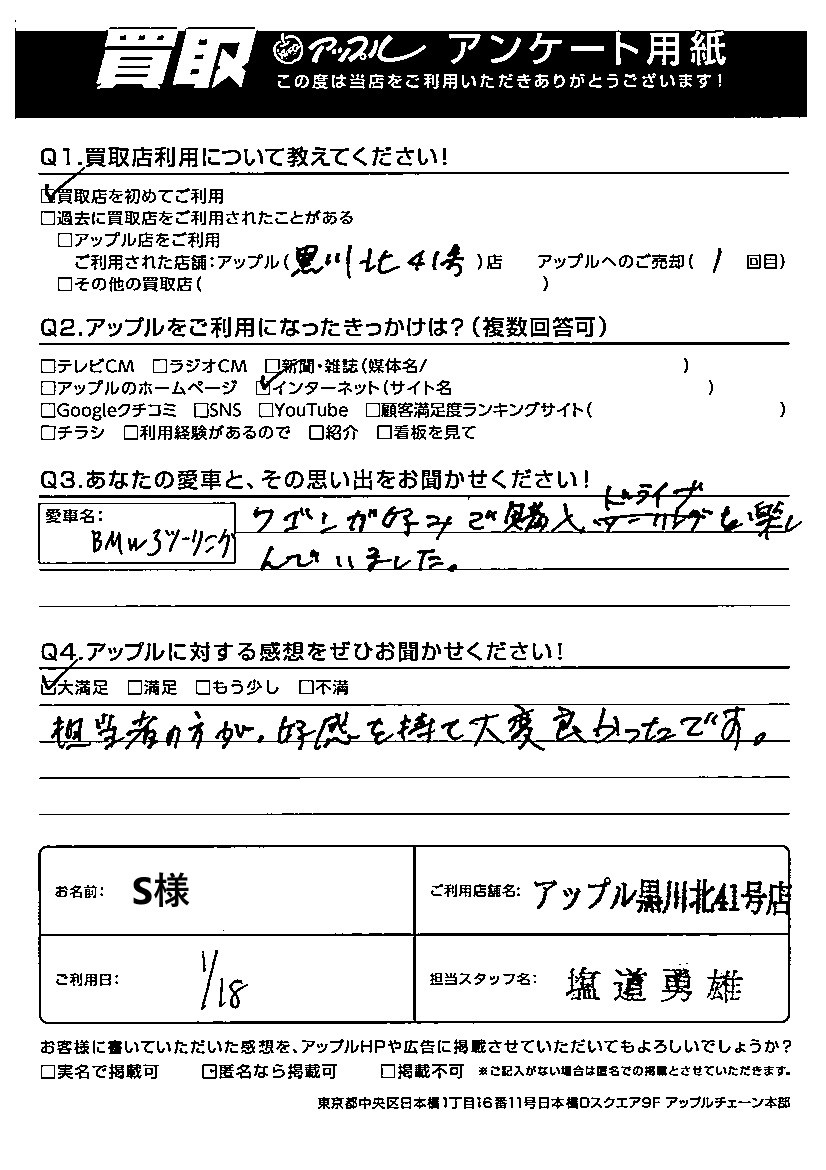 買取 アップル アンケート用紙
この度は当店をご利用いただきありがとうございます!
Q1.買取店利用について教えてください!
☑買取店を初めてご利用
□過去に買取店をご利用されたことがある
□アップル店をご利用
ご利用された店舗:アップル(黒川北41号)店 アップルへのご売却(1回目)
□その他の買取店( )
Q2.アップルをご利用になったきっかけは?(複数回答可)
□テレビCM □ラジオCM □新聞・雑誌(媒体名/ )
□アップルのホームページ ☑インターネット(サイト名 )
□Googleクチコミ □SNS □YouTube □顧客満足度ランキングサイト( )
□チラシ □利用経験があるので □紹介 □看板を見て
Q3.あなたの愛車と、その思い出をお聞かせください!
愛車名:
BMW3ツーリング
ワゴンが好みで購入ドライブを楽し
んでいました。
Q4.アップルに対する感想をぜひお聞かせください!
☑大満足 □満足 □もう少し □不満
担当者の方が、好感を持て大変良かったです。
お名前: S様 ご利用店舗名: アップル黒川北41号店
ご利用日: 1/18 担当スタッフ名: 塩道勇雄
お客様に書いていただいた感想を、アップルHPや広告に掲載させていただいてもよろしいでしょうか?
□実名で掲載可 ☑匿名なら掲載可 □掲載不可 ※ご記入がない場合は匿名での掲載とさせていただきます。
東京都中央区日本橋1丁目16番11号日本橋Dスクエア9F アップルチェーン本部